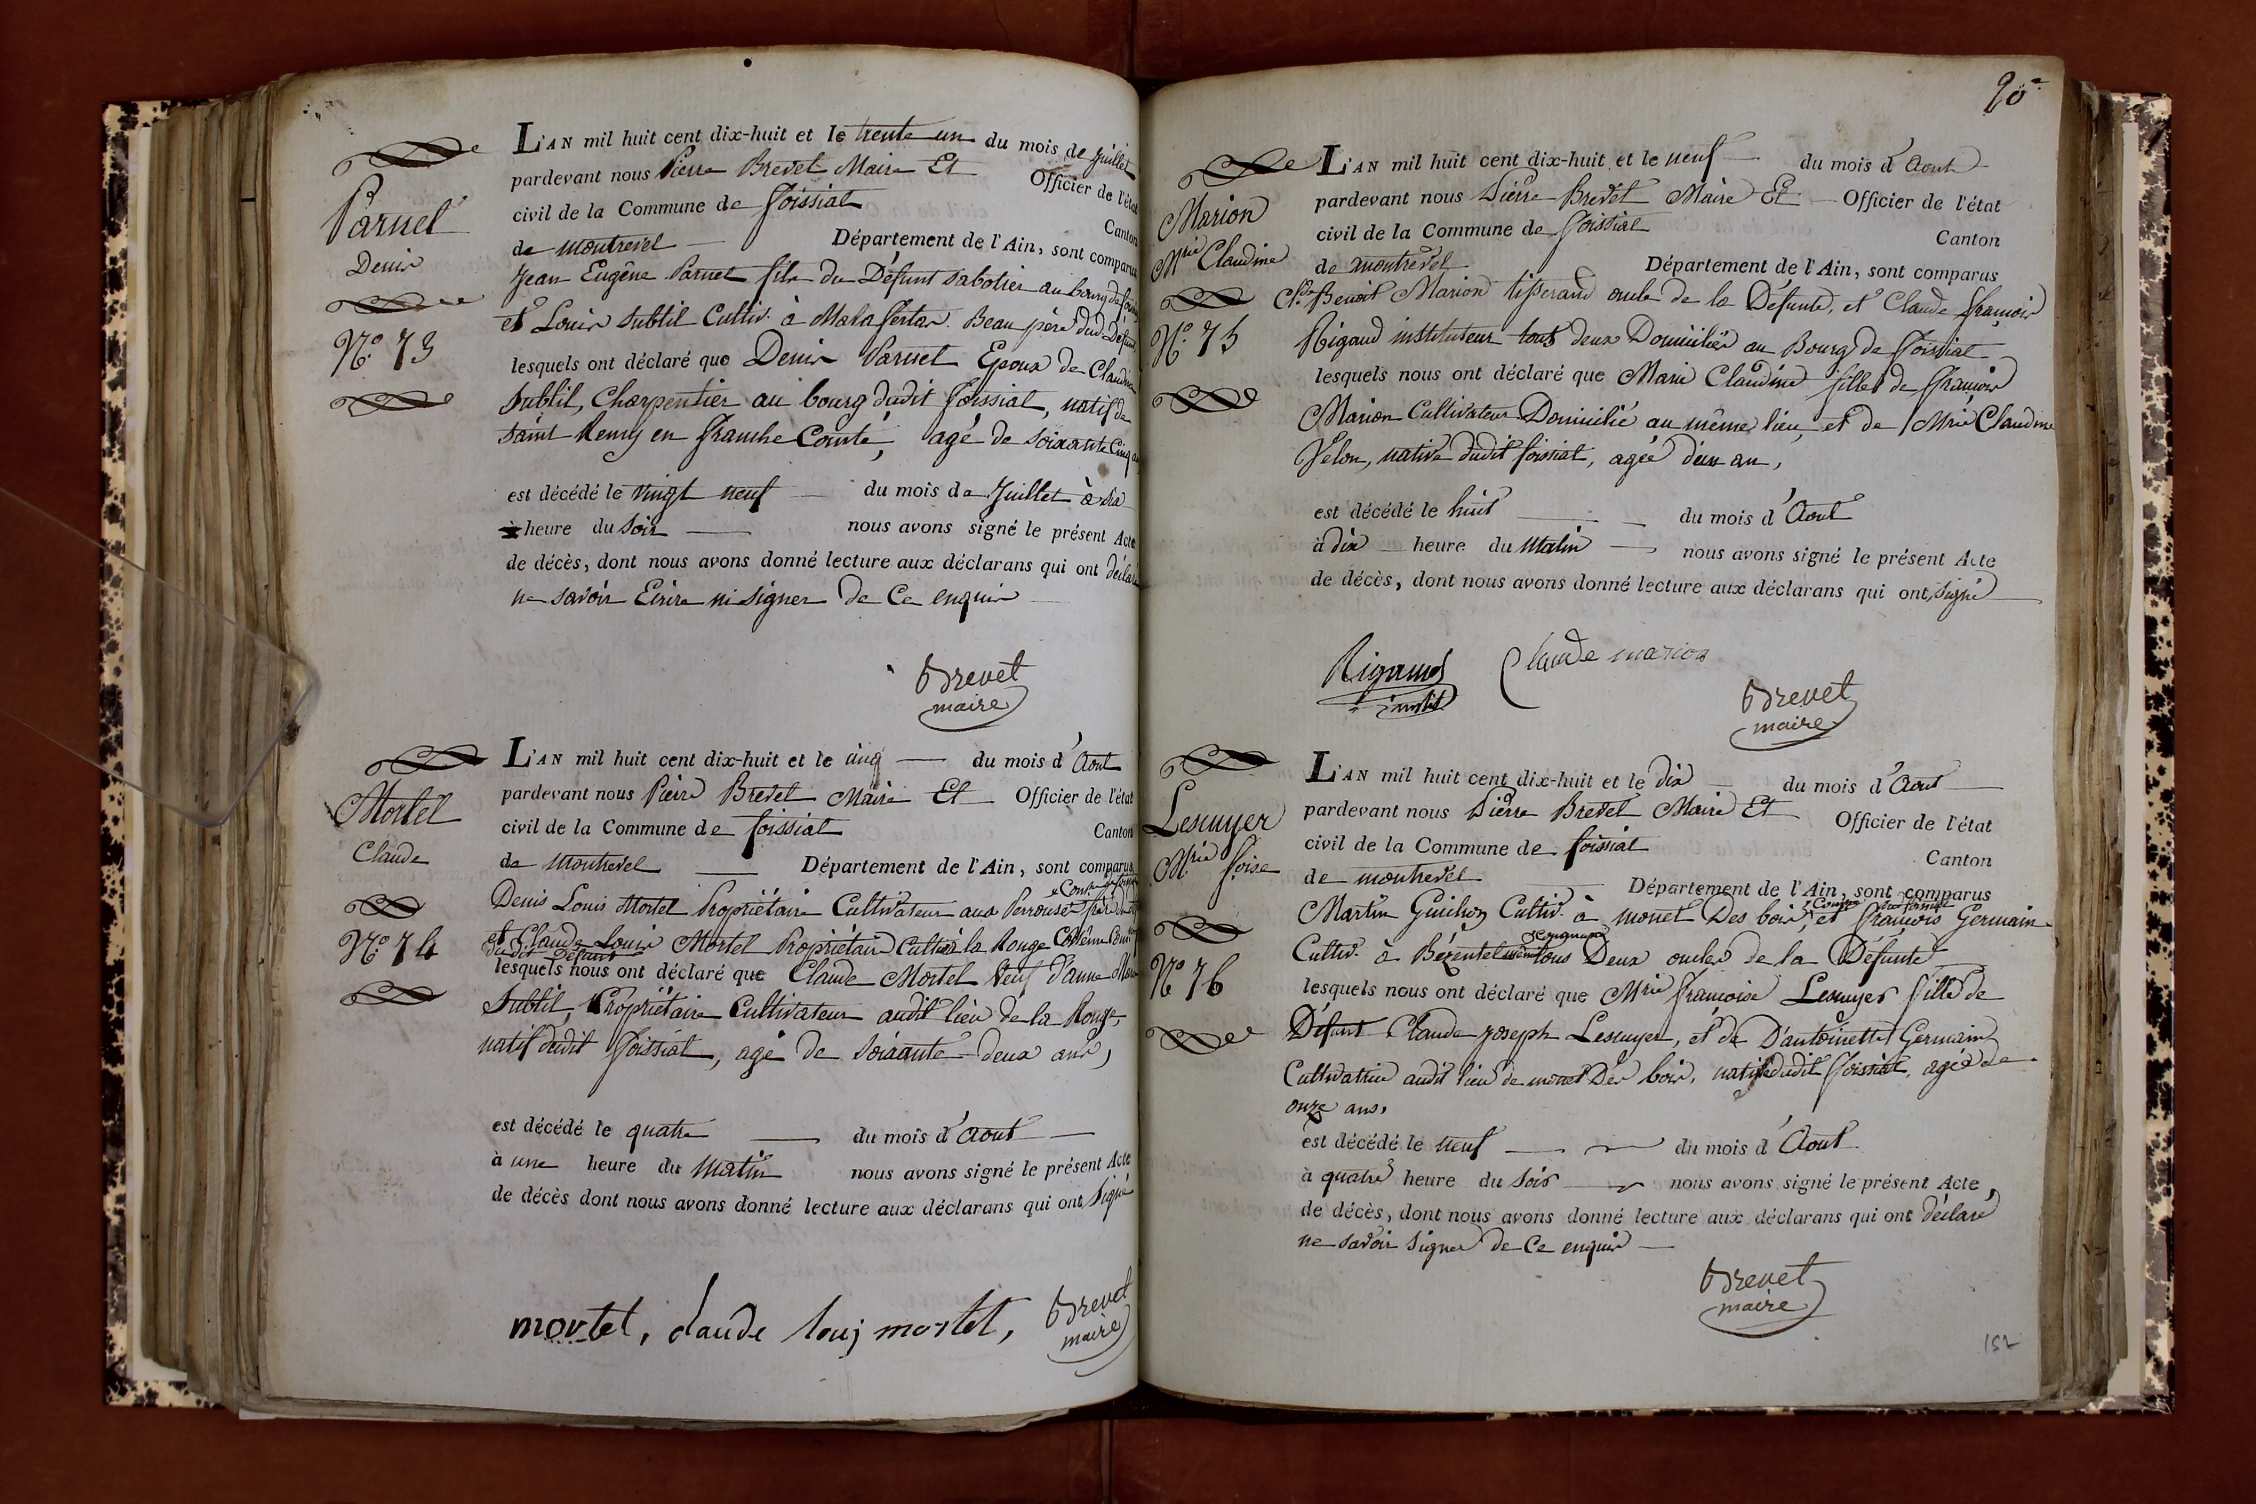 Parnet
Denis
N.º 73
L'AN mil huit cent dix-huit et le trente un du mois de Juillet
pardevant nous Pierre Brevet Maire Et Officier de l'état
civil de la Commune de foissiat Canton
de montrevel Département de l'Ain, sont comparus
Jean Eugêne Parnet fils du Défunt sabotier au bourg de
et Louis Subtil Cultiv. à Malafertas. Beau père dud. Défunt
lesquels ont déclaré que Denis Parnet Epoux de Claudine
Subtil, Charpentier au bourg dudit foissiat, natif de
saint Remy en franche Comté, agé de soixante Cinq
est décédé le vingt neuf du mois de Juillet à six
heure du soir nous avons signé le présent Acte
de décès, dont nous avons donné lecture aux déclarans qui ont déclaré
ne savoir Ecrire ni signer de Ce enquis
Brevet
maire
Mortel
Claude
N.º 74
L'AN mil huit cent dix-huit et le cinq du mois d'Aout
pardevant nous Pierre Brevet Maire Et Officier de l'état
civil de la Commune de foissiat Canton
de montrevel Département de l'Ain, sont comparus
Denis Louis Mortel Propriétaire Cultivateur aux Perrouses
et Claude Louis Mortel Propriétaire Cultiv. à la Rouge
dudit Défunt
lesquels nous ont déclaré que Claude Mortel Veuf d'anne
Subtil, Propriétaire Cultivateur audit lieu de la Rouge,
natif dudit foissiat, agé de soixante-deux ans,
est décédé le quatre du mois d'Aout
à une heure du Matin nous avons signé le présent Acte
de décès dont nous avons donné lecture aux déclarans qui ont signé
mortel, claude louj mortel,
Brevet
maire
90
Marion
Mrie Claudine
N.º 75
L'AN mil huit cent dix-huit et le neuf du mois d'Aout
pardevant nous Pierre Brevet Maire Et Officier de l'état
civil de la Commune de foissiat Canton
de montrevel Département de l'Ain, sont comparus
Cde Benoit Marion tisserand oncle de la Défunte, et Claude françois
Rigaud instituteur tous deux Domiciliés au Bourg de foissiat
lesquels nous ont déclaré que Marie Claudine fille de françois
Marion Cultivateur Domicilié au même lieu, et de Mrie Claudine
Velon, native dudit foissiat, agée d'un an,
est décédé le huit du mois d'Aout
à dix heure du Matin nous avons signé le présent Acte
de décès, dont nous avons donné lecture aux déclarans qui ont signé
Rigaud
instit
Claude marion
Brevet
maire
Lescuyer
Mrie foise
N.º 76
L'AN mil huit cent dix-huit et le dix du mois d'Aout
pardevant nous Pierre Brevet Maire Et Officier de l'état
civil de la Commune de foissiat Canton
de montrevel Département de l'Ain, sont comparus
Martin Guichon Cultiv. à monet Des bois, et françois Germain
Cultiv. à Bézentel tous Deux oncles de la Défunte
lesquels nous ont déclaré que Mrie françoise Lescuyer fille de
Défunt Claude joseph Lescuyer, et de D'antoinette Germain
Cultivatrice audit lieu de monet Des bois, native dudit foissiat, agée de
onze ans.
est décédé le neuf du mois d'Aout
à quatre heure du soir nous avons signé le présent Acte,
de décès, dont nous avons donné lecture aux déclarans qui ont déclaré
ne savoir signer de Ce enquis
Brevet
maire
152